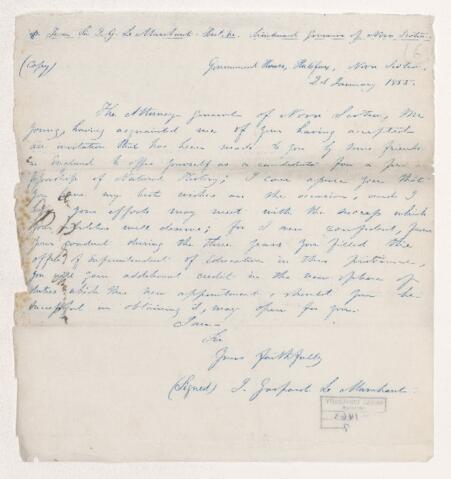 From Sir J. G. Le Marchant Lieutenant Governor of Nova Scotia
16
(Copy)
Government House, Halifax, Nova Scotia,
2d January 1855.
The Attorney General of Nova Scotia, Mr
Young, having acquainted me of your having accepted
an invitation that has been made to you by some friends
in England to offer yourself as a candidate for a pro
fessorship of Natural History; I can assure you that
you have my best wishes on the occasion, and I
your efforts may meet with the success which
your abilities well deserve; for I am confident, from
your conduct during the three years you filled the
office of Superintendent of Education in this Province,
you will gain additional credit in the new sphere of
duties which this new appointment, should you be
successful in obtaining it, may open for you.
I am
Sir
Yours faithfully
(Signed) J. Gaspard Le Marchant.